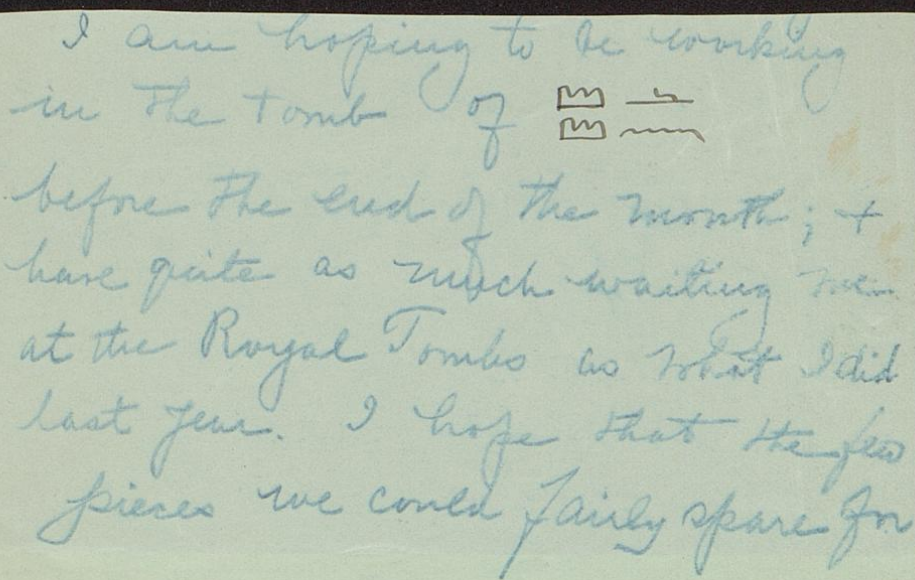 I am hoping to be working
in the tomb of
before the end of the month; +
have quite as much waiting me
at the Royal Tombs as what I did
last year. I hope that the few
pieces we could fairly spare for